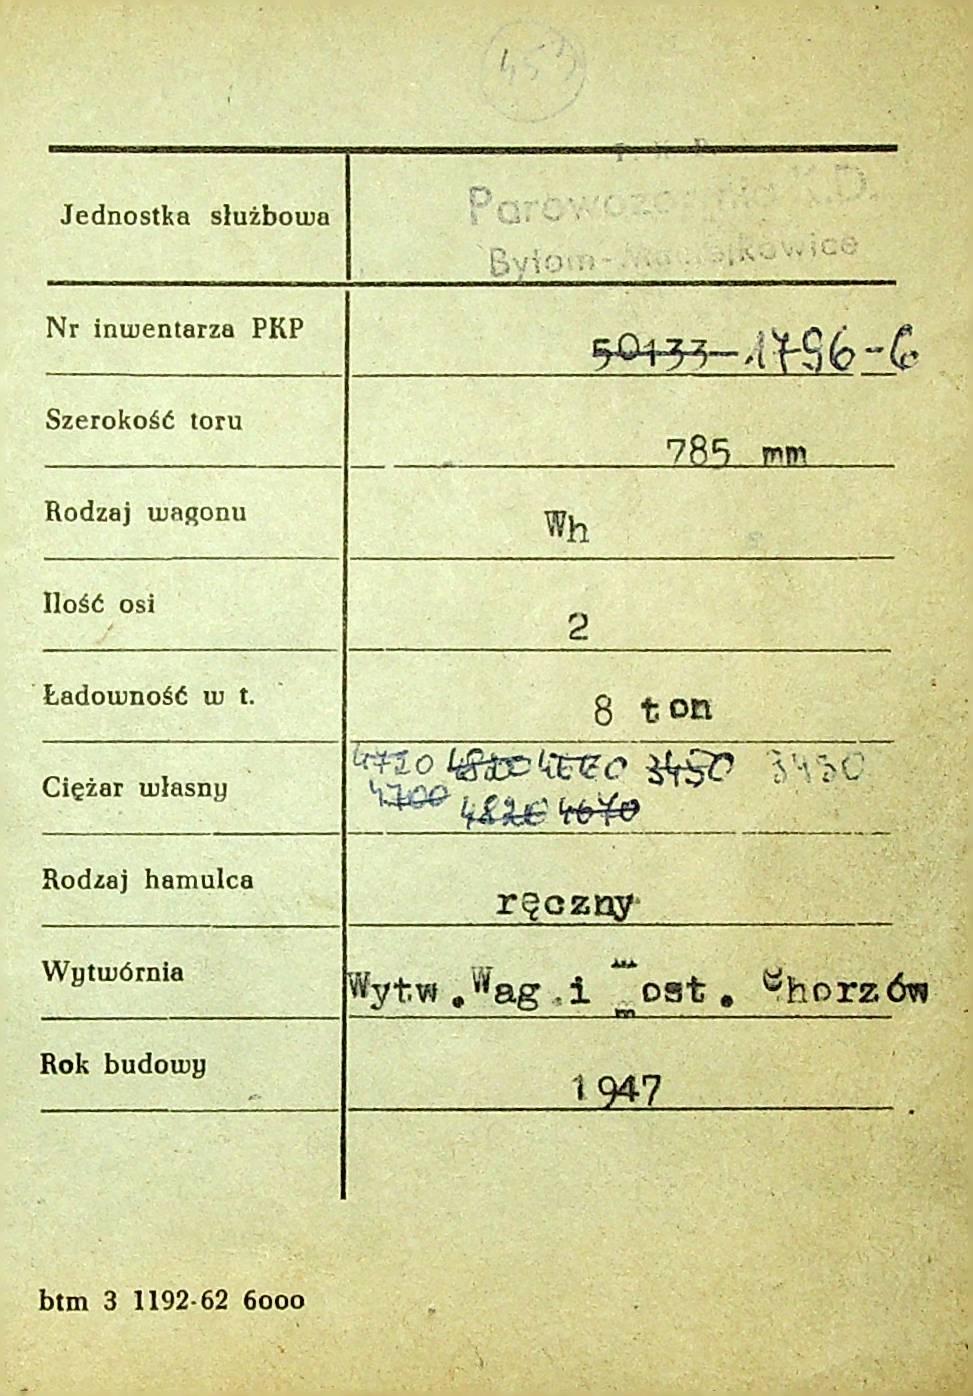 453
P. K. P.
Jednostka służbowa
Parowozownia K.D.
Bytom-Maciejkowice
Nr inwentarza PKP
50133 1796-6
Szerokość toru
785 mm
Rodzaj wagonu
Wh
Ilość osi
2
Ładowność w t.
8 ton
Ciężar własny
4720 4820 4660 3450 3450
4700 4820 4670
Rodzaj hamulca
ręczny
Wytwórnia
Wytw. Wag i Most. Chorzów
Rok budowy
1947
btm 3 1192-62 6000